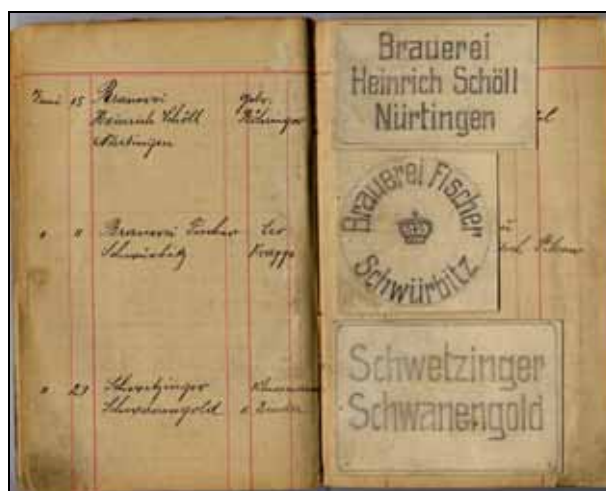 Juni 15 Brauerei
Heinrich Schöll
Nürtingen
Gebr.
" " Brauerei Fischer Leo
Schwürbitz Knappe
" 23 Schwetzinger
Schwanengold
Brauerei
Heinrich Schöll
Nürtingen
Brauerei Fischer
Schwürbitz
Schwetzinger
Schwanengold